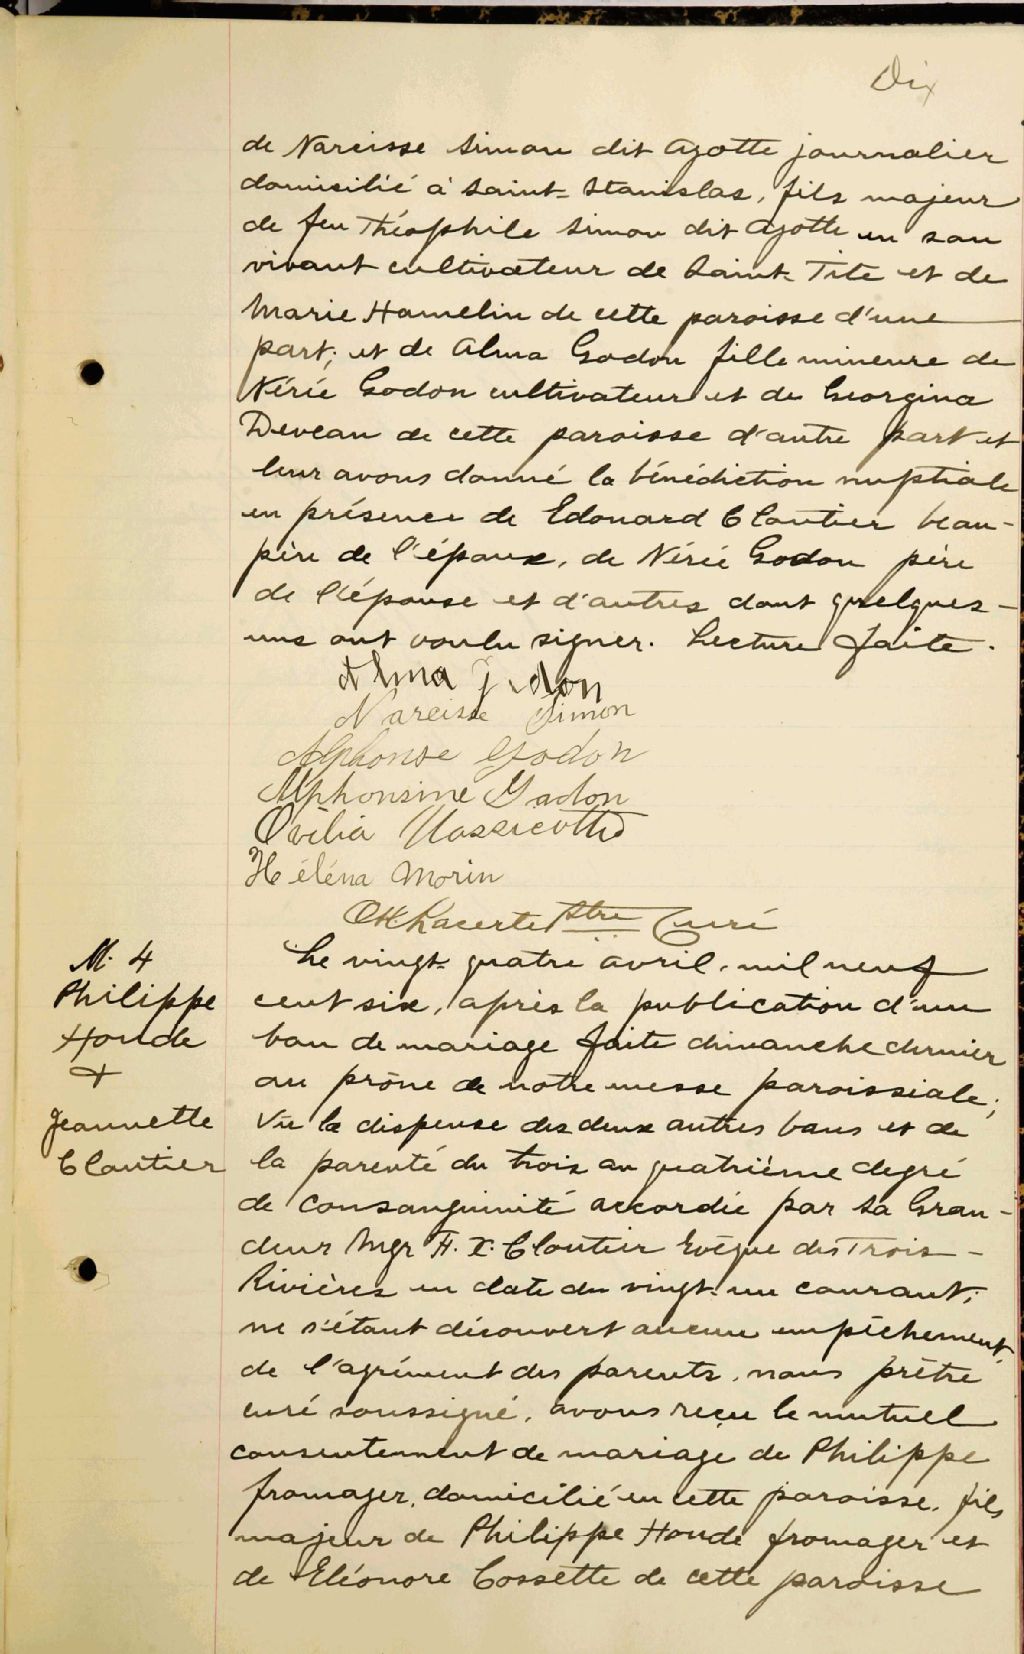 Dix
de Narcisse Simon dit Ayotte journalier
domicilié à Saint-Stanislas, fils majeur
de feu Théophile Simon dit Ayotte en son
vivant cultivateur de Saint-Tite et de
Marie Hamelin de cette paroisse d'une
part; et de Alma Godon fille mineure de
Nérée Godon cultivateur et de Georgina
Deveau de cette paroisse d'autre part et
leur avons donné la bénédiction nuptiale
en présence de Edouard Cloutier beau-
père de l'époux, de Nérée Godon père
de l'épouse et d'autres dont quelques-
uns ont voulu signer. Lecture faite.
Alma Godon
Narcisse Simon
Alphonse Godon
Alphonsine Gadon
Ovilia Massicotte
Héléna Morin
Lacerte Ptre Curé
M. 4
Philippe
Houde
+
Jeannette
Cloutier
Le vingt-quatre avril, mil neuf
cent six, après la publication d'un
ban de mariage faite dimanche dernier
au prône de notre messe paroissiale;
Vu la dispense des deux autres bans et de
la parenté du trois au quatrième degré
de consanguinité accordée par Sa Gran-
deur Mgr F. X. Cloutier Evêque des Trois-
Rivières en date du vingt-un courant;
ne s'étant découvert aucun empêchement,
de l'agrément des parents, nous prêtre
curé soussigné, avons reçu le mutuel
consentement de mariage de Philippe
fromager, domicilié en cette paroisse, fils
majeur de Philippe Houde fromager et
de Eléonore Cossette de cette paroisse